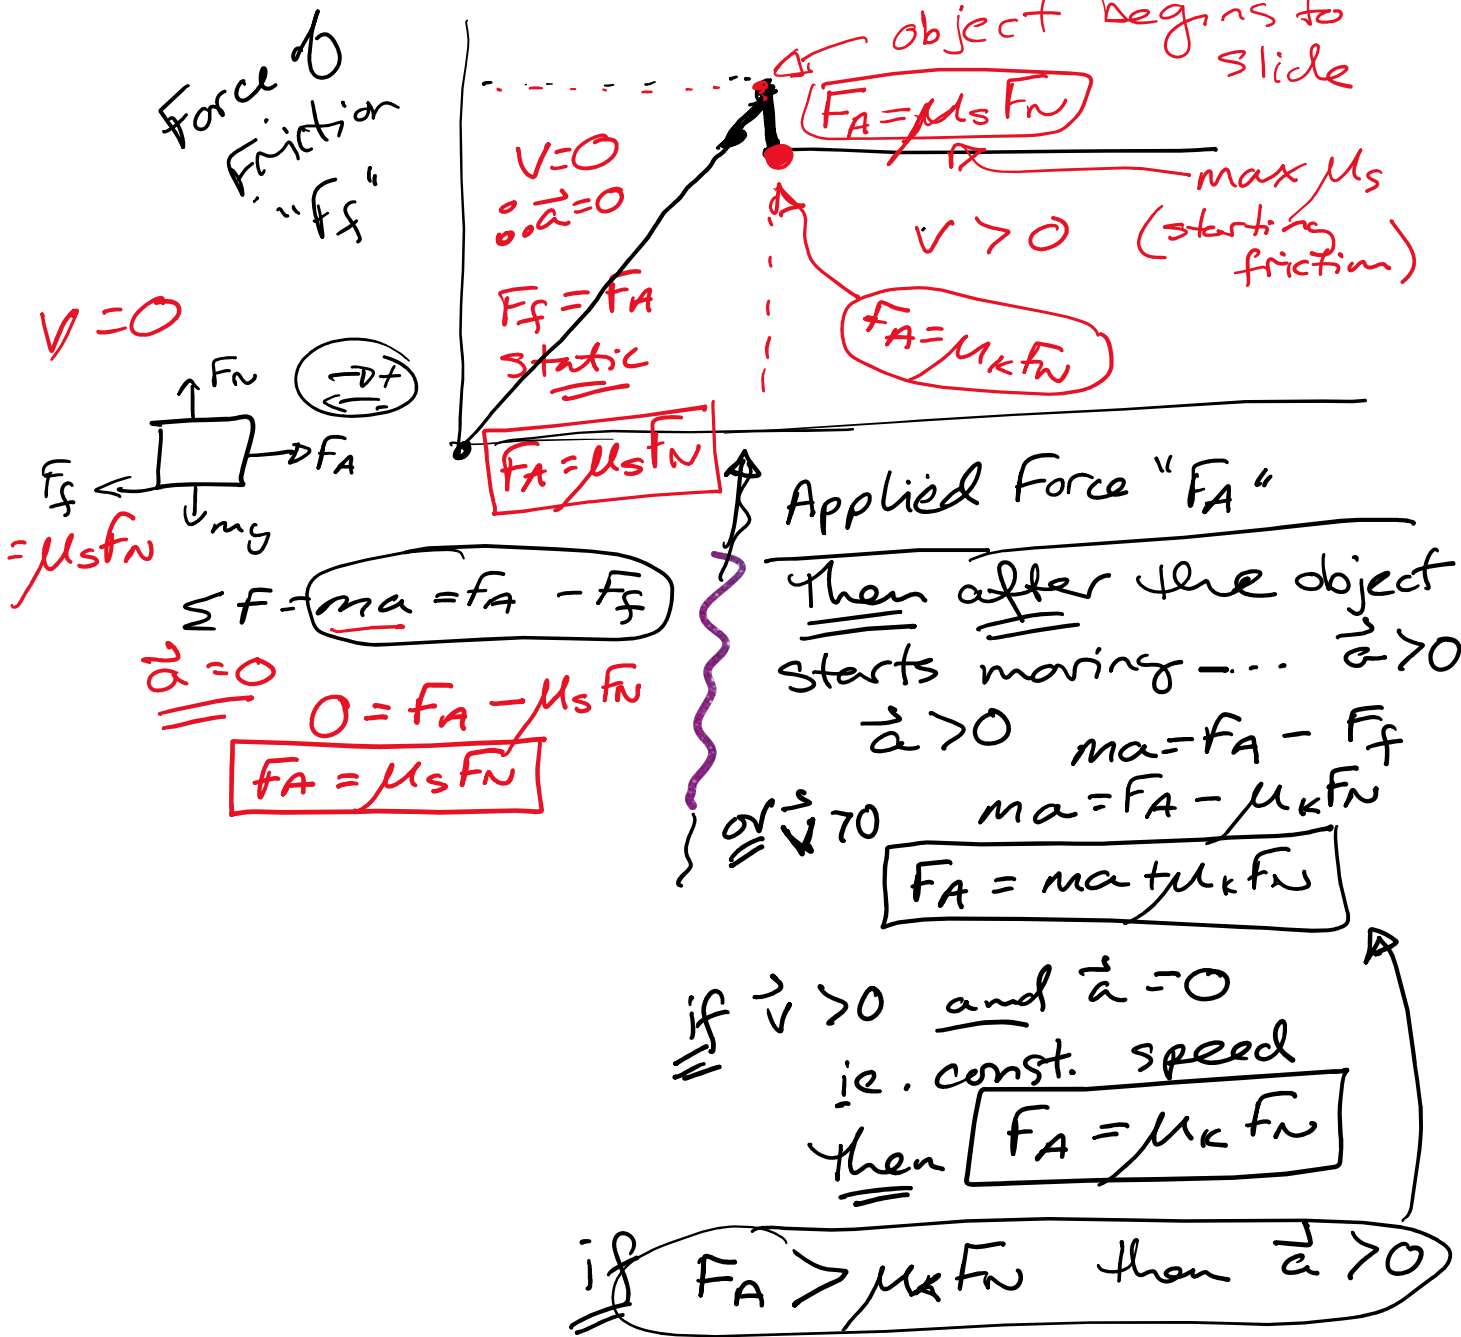 Force of
Friction
"Ff"
object begins to
slide
FA = μs FN
max μs
(starting
friction)
V=0
∴ a⃗=0
Ff = FA
static
v > 0
FA = μk FN
FA = μs FN
Applied Force "FA"
V=0
→ +
←
FN
FA
Ff
= μs FN
mg
ΣF = ma = FA - Ff
a⃗ = 0
0 = FA - μs FN
FA = μs FN
Then after the object
starts moving - ... a⃗ > 0
a⃗ > 0
ma = FA - Ff
ma = FA - μk FN
or v⃗ > 0
FA = ma + μk FN
if v⃗ > 0 and a⃗ = 0
ie. const. speed
then FA = μk FN
if FA > μk FN then a⃗ > 0